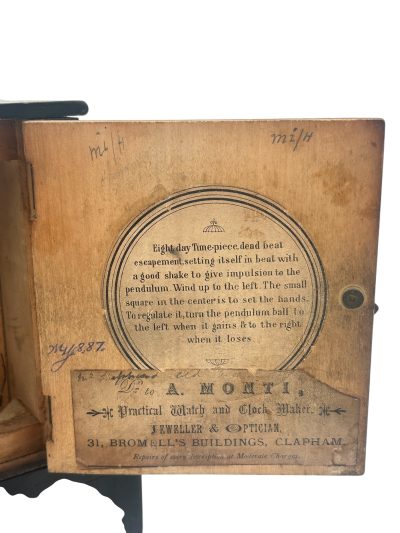 mi/4
mi/4
Eight day Time-piece, dead beat
escapement, setting itself in beat with
a good shake to give impulsion to the
pendulum. Wind up to the left. The small
square in the center is to set the hands.
To regulate it, turn the pendulum ball to
the left when it gains & to the right
when it loses
Dr. to A. MONTI,
Practical Watch and Clock Maker,
JEWELLER & OPTICIAN,
31, BROMELL'S BUILDINGS, CLAPHAM.
Repairs of every description at Moderate Charges.